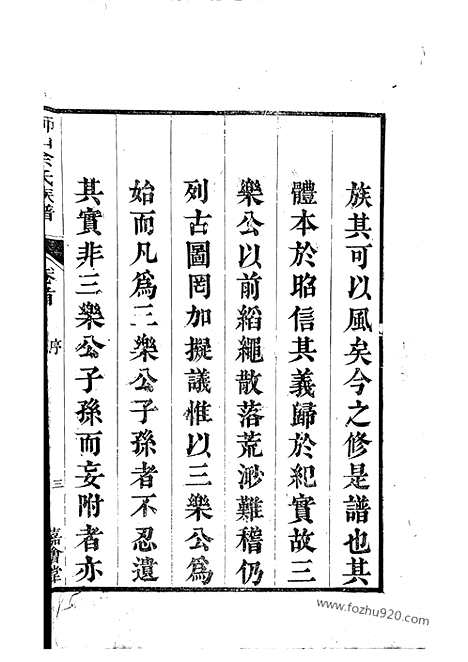 族其可以風矣今之修是譜也其
體本於昭信其義歸於紀實故三
樂公以前縚繩散落荒渺難稽仍
列古圖罔加擬議惟以三樂公爲
始而凡爲三樂公子孫者不忍遺
其實非三樂公子孫而妄附者亦
余氏族譜
卷首
序
三
嘉會堂
www.fozhu920.com